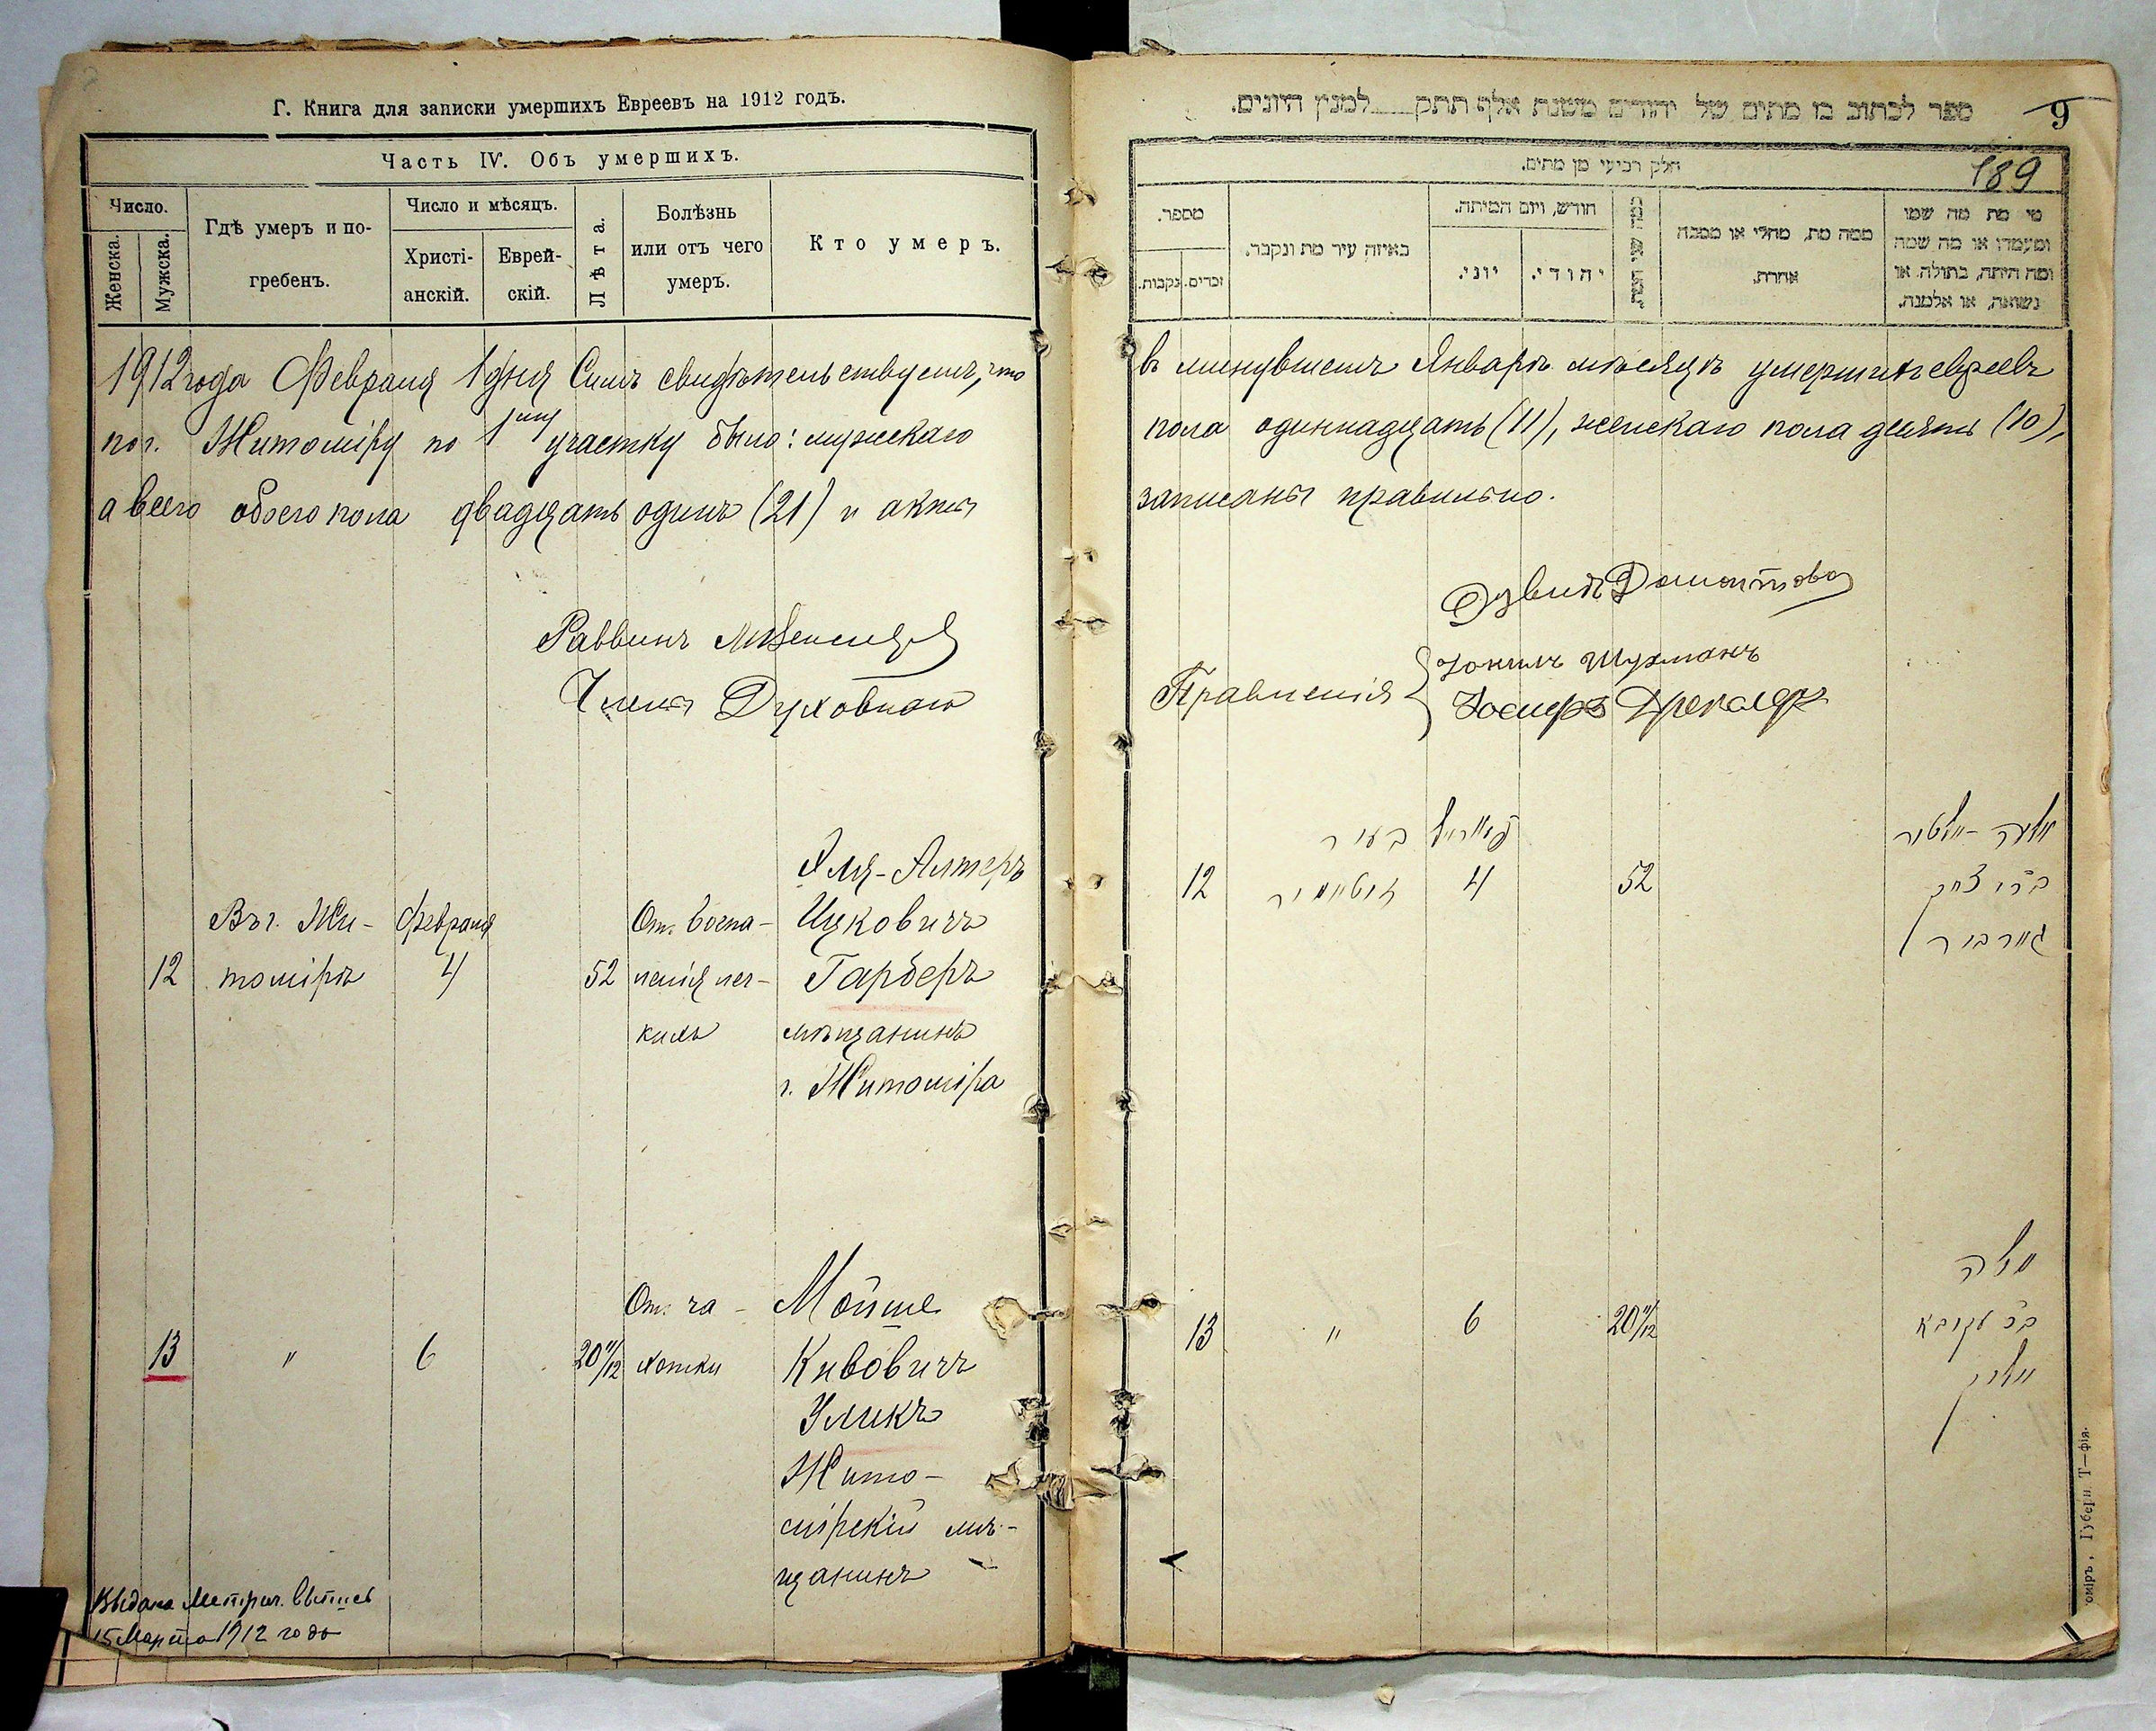 Г. Книга для записки умершихъ Евреевъ на 1912 годъ.
Часть IV. Объ умершихъ.
Число.
Женска.
Мужска.
Гдѣ умеръ и по-
гребенъ.
Число и мѣсяцъ.
Христі-
анскій.
Еврей-
скій.
Лѣта.
Болѣзнь
или отъ чего
умеръ.
Кто умеръ.
1912 года Февраля 1 дня Симъ свидѣтельствуемъ, что
по г. Житоміру по 1му участку было: мужскаго
а всего обоего пола двадцать одинъ (21) и акты
Раввинъ
Члены Духовнаго
12
Въ г. Жи-
томірѣ
Февраля
4
52
От. воспа-
ленія лег-
кихъ
Эля-Алтеръ
Ицковичъ
Гарберъ
мѣщанинъ
г. Житоміра
13
"
6
20 11/12
От. ча-
хотки
Мойше
Кивовичъ
Уликъ
Жито-
мірскій мѣ-
щанинъ
Выдана Метрич. выпись
15 Марта 1912 года
ספר לכתוב בו מתים של יהודים משנת אלף תתק למנין היונים.
9
189
חלק רביעי מן מתים.
מספר.
זכרים.
נקבות.
באיזה עיר מת ונקבר.
חודש, ויום המיתה.
יוני.
יהודי.
ממה מת, מחלי או ממכה
אחרת.
מי מת מה שמו
ומעמדו או מה שמה
ומה היתה, בתולה או
נשואה, או אלמנה.
въ минувшемъ Январѣ мѣсяцѣ умершихъ евреевъ
пола одиннадцать (11), женскаго пола десять (10),
записаны правильно.
Правленія
Іосифъ
12
בעיר
זיטאמיר
פֿעווראל
4
52
אליה-אלטער
ב"ר יצחק
גארבער
13
"
6
20 11/12
משה
ב"ר עקיבא
אוליק
оміръ, Губерн. Т—фія.